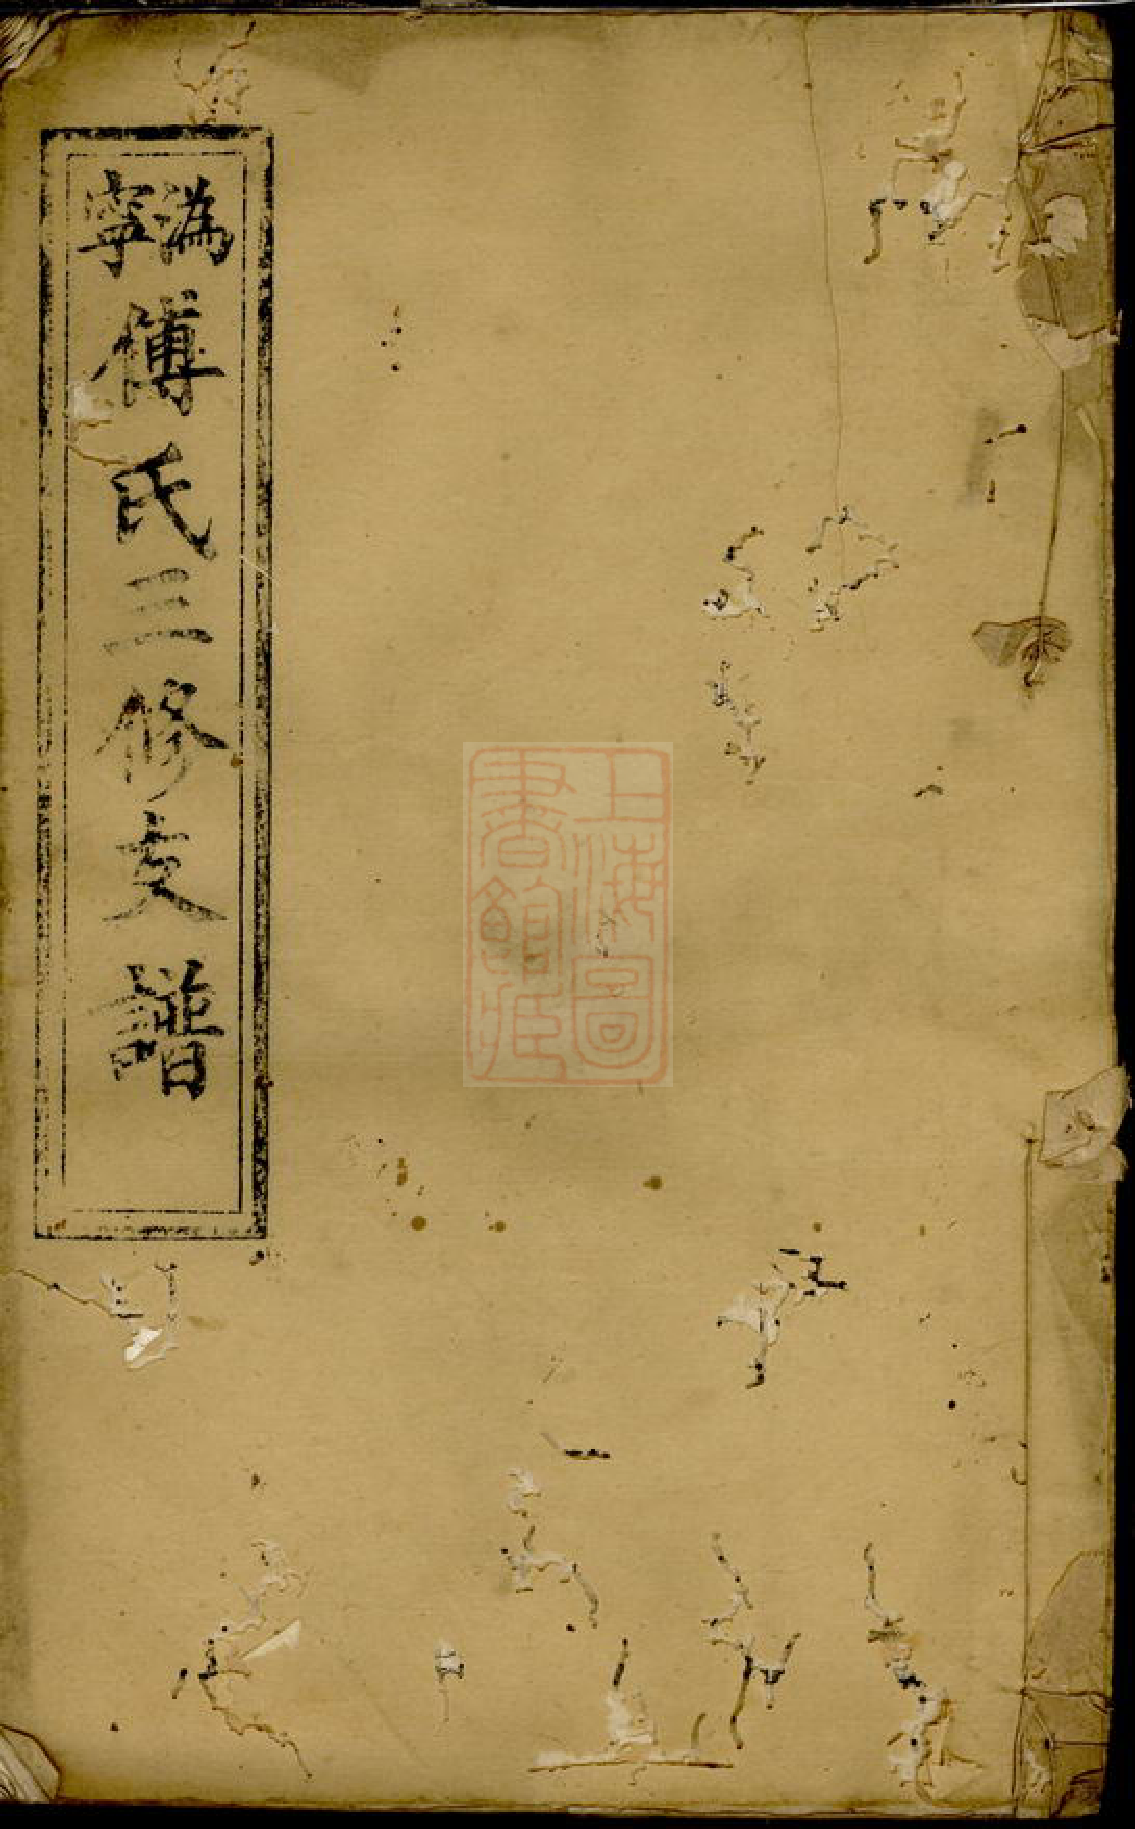 溈寧傅氏三修支譜
上海圖
書館藏